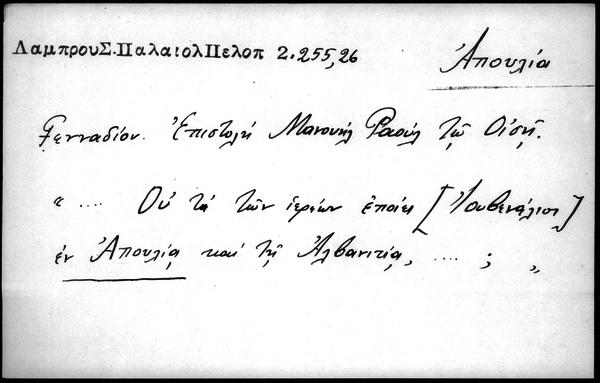 ΛαμπρουΣ.ΠαλαιολΠελοπ 2.255,26
Ἀπουλία
Γενναδίου. Ἐπιστολή Μανουήλ Ραούλ τῷ Οἰσῇ.
" .... Οὐ τά τῶν ἱερέων ἐποίει [Ἰουβενάλιος]
ἐν Ἀπουλίᾳ καί τῇ Ἀλβανιτίᾳ, .... ; "